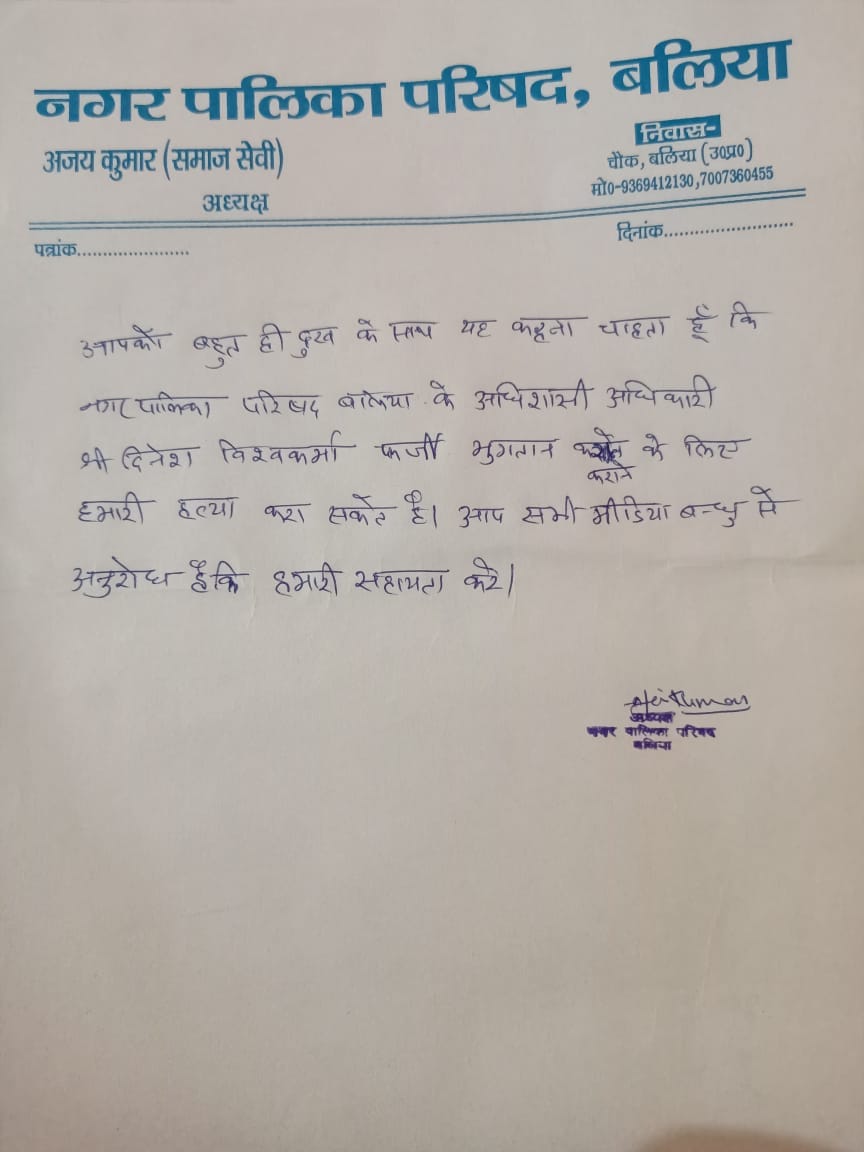 नगर पालिका परिषद, बलिया
अजय कुमार (समाज सेवी)
अध्यक्ष
निवास-
चौक, बलिया (उ०प्र०)
मो०-9369412130,7007360455
पत्रांक......................
दिनांक.........................
आपको बहुत ही दुख के साथ यह कहना चाहता हूँ कि
नगर पालिका परिषद बलिया के अधिशासी अधिकारी
श्री दिनेश विश्वकर्मा फर्जी भुगतान के लिए
कराने
हमारी हत्या करा सकते है। आप सभी मीडिया बन्धु से
अनुरोध है कि हमारी सहायता करे।
Kumar
अध्यक्ष
नगर पालिका परिषद
बलिया